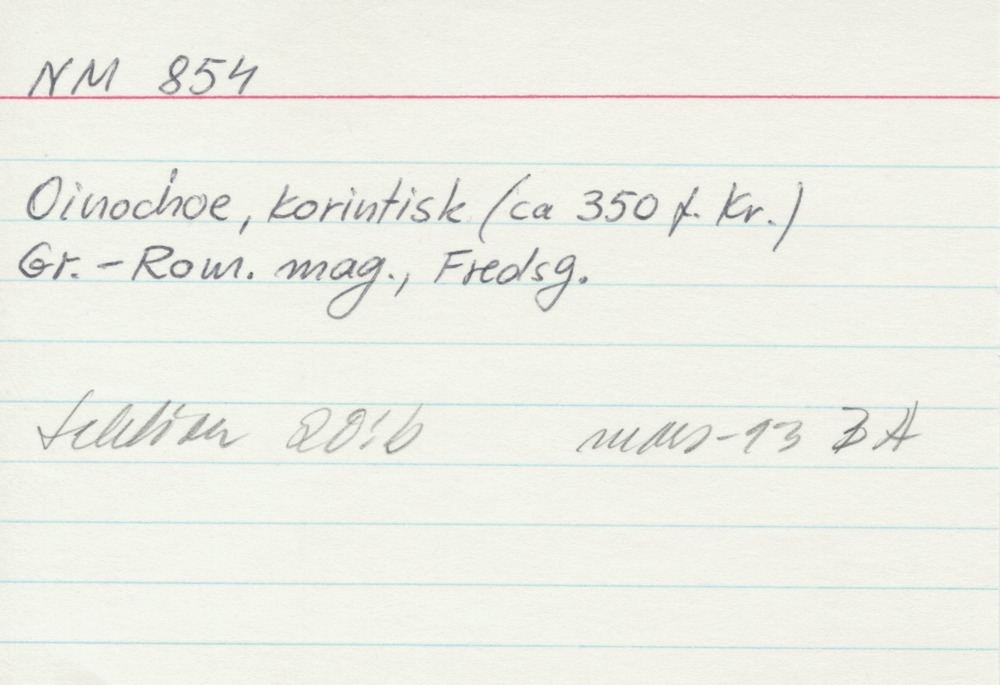 NM 854
Oinochoe, korintisk (ca 350 f. Kr.)
Gr. - Rom. mag., Fredsg.
Sektion mars-93 BA